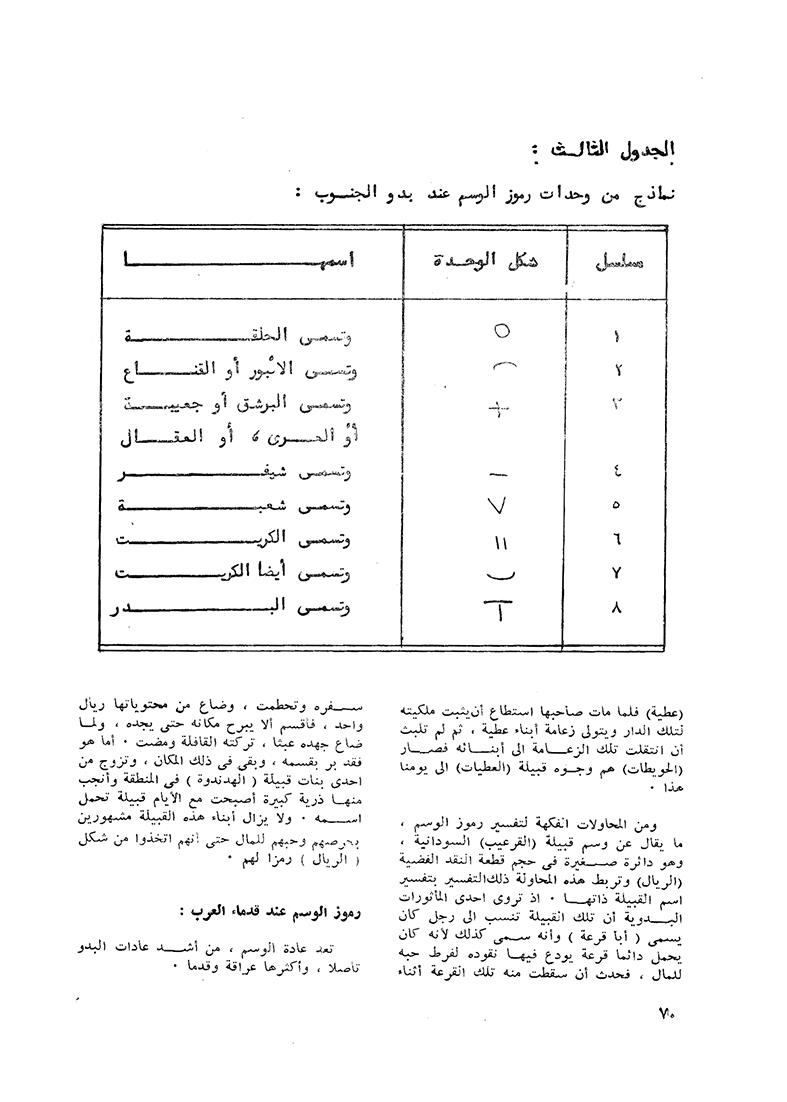 الجدول الثالث :
نماذج من وحدات رموز الوسم عند بدو الجنوب :
مسلسل شكل الوحدة اسمها
١ ○ وتسمى الحلقة
٢ ⌒ وتسمى الانبور أو القناع
٣ + وتسمى البرشق أو جعيبة
أو العرى ، أو العقال
٤ — وتسمى شيفر
٥ ٧ وتسمى شعبة
٦ ١١ وتسمى الكريت
٧ ‿ وتسمى أيضا الكريت
٨ T وتسمى البدر
(عطية) فلما مات صاحبها استطاع أن يثبت ملكيته
لتلك الدار ويتولى زعامة أبناء عطية ، ثم لم تلبث
أن انتقلت تلك الزعامة الى أبنائه فصار
(الحويطات) هم وجوه قبيلة (العطيات) الى يومنا
هذا ٠
ومن المحاولات الفكهة لتفسير رموز الوسم ،
ما يقال عن وسم قبيلة (القرعيب) السودانية ،
وهو دائرة صغيرة في حجم قطعة النقد الفضية
(الريال) وتربط هذه المحاولة ذلك التفسير بتفسير
اسم القبيلة ذاتها ٠ اذ تروى احدى المأثورات
البدوية أن تلك القبيلة تنسب الى رجل كان
يسمى ( أبا قرعة ) وأنه سمى كذلك لأنه كان
يحمل دائما قرعة يودع فيها نقوده لفرط حبه
للمال ، فحدث أن سقطت منه تلك القرعة أثناء
سفره وتحطمت ، وضاع من محتوياتها ريال
واحد ، فأقسم ألا يبرح مكانه حتى يجده ، ولما
ضاع جهده عبثا ، تركته القافلة ومضت ٠ أما هو
فقد بر بقسمه ، وبقى فى ذلك المكان ، وتزوج من
احدى بنات قبيلة ( الهدندوة ) فى المنطقة وأنجب
منها ذرية كبيرة أصبحت مع الأيام قبيلة تحمل
اسمه ٠ ولا يزال أبناء هذه القبيلة مشهورين
بحرصهم وحبهم للمال حتى أنهم اتخذوا من شكل
( الريال ) رمزا لهم ٠
رموز الوسم عند قدماء العرب :
تعد عادة الوسم ، من أشد عادات البدو
تأصلا ، وأكثرها عراقة وقدما ٠
٧٥